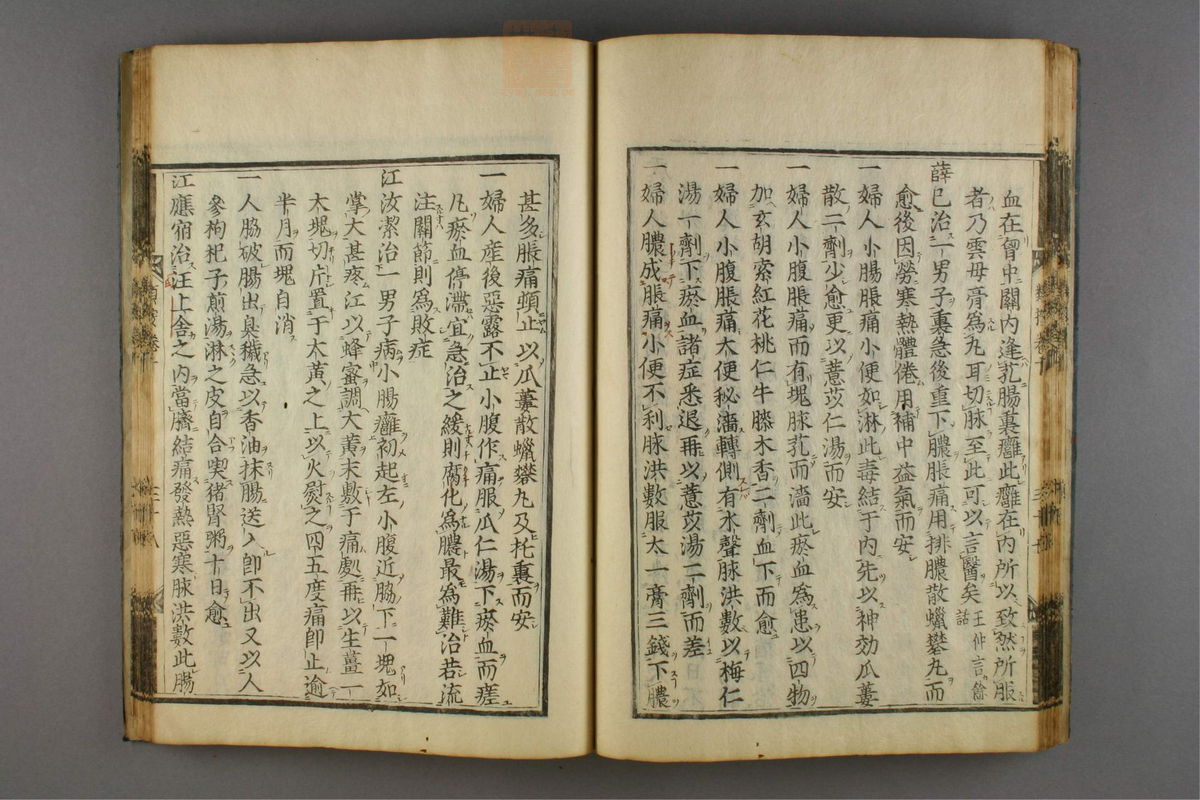 血在胷中關内逢芤腸裏癰此癰在内所以致然所服
者乃雲母膏爲丸耳切脉至此可以言醫矣 王仲言餘話
薛己治一男子裏急後重下膿脹痛用排膿散蠟礬丸而
愈後因勞寒熱體倦用補中益氣而安
一婦人小腸脹痛小便如淋此毒結于内先以神効瓜蔞
散二劑少愈更以薏苡仁湯而安
一婦人小腹脹痛而有塊脉芤而濇此瘀血爲患以四物
加玄胡索紅花桃仁牛膝木香二劑血下而愈
一婦人小腹脹痛大便秘濇轉側有水聲脉洪數以梅仁
湯一劑下瘀血諸症悉退再以薏苡湯二劑而差
一婦人膿成脹痛小便不利脉洪數服太一膏三錢下膿
甚多脹痛頓止以瓜蔞散蠟礬丸及托裏而安
一婦人産後惡露不止小腹作痛服瓜仁湯下瘀血而瘥
凡瘀血停滯宜急治之緩則腐化爲膿最爲難治若流
注關節則爲敗症
江汝潔治一男子病小腸癰初起左小腹近脇下一塊如
掌大甚疼江以蜂蜜調大黃末敷于痛處再以生薑一
大塊切片置于大黃之上以火熨之四五度痛即止逾
半月而塊自消
一人脇破腸出臭穢急以香油抹腸送入即不出又以人
參枸杞子煎湯淋之皮自合喫猪腎粥十日愈
江應宿治汪上舍之内當臍結痛發熱惡寒脉洪數此腸